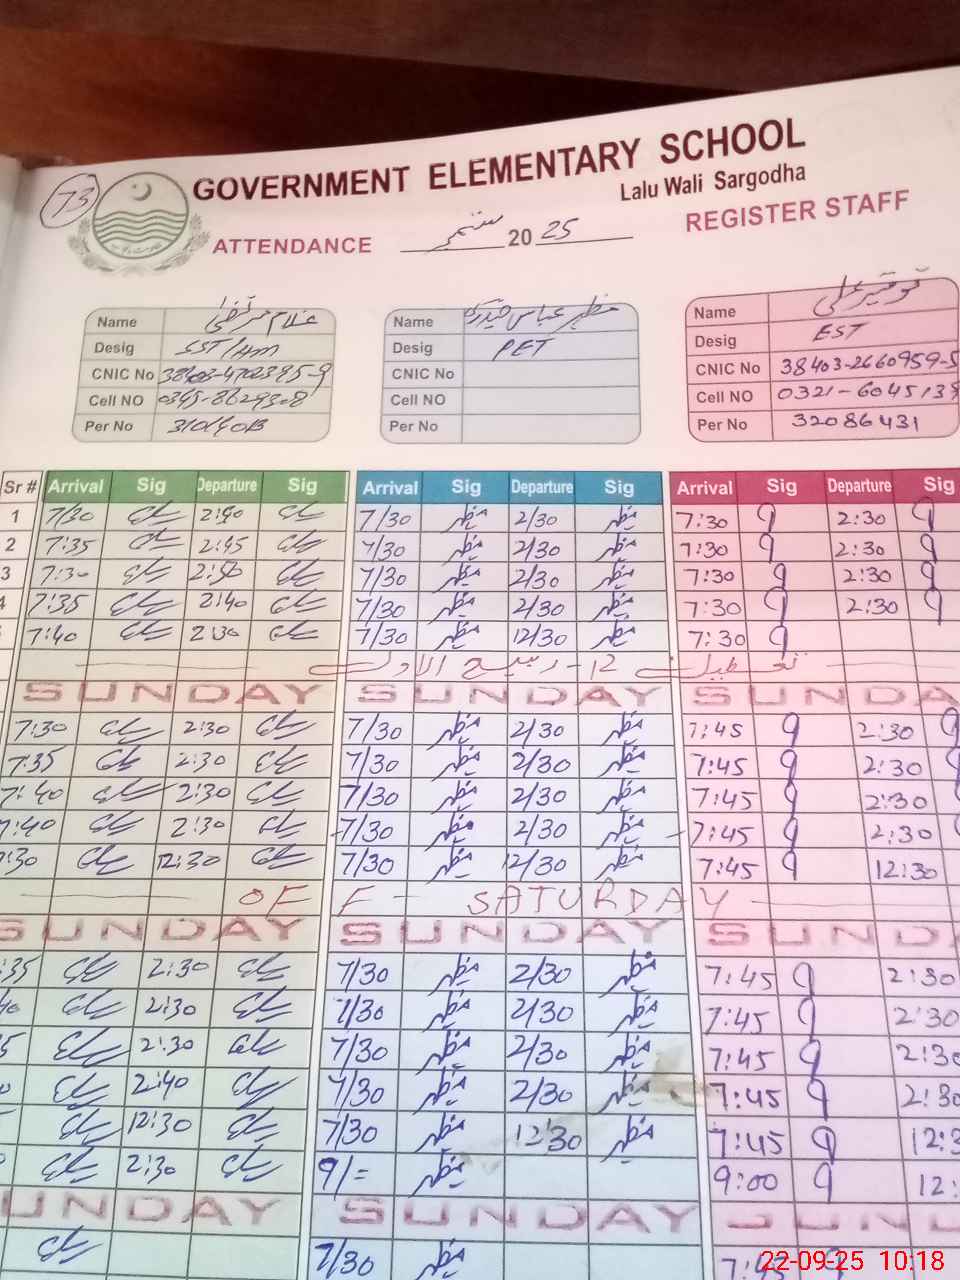 73
GOVERNMENT ELEMENTARY SCHOOL
Lalu Wali Sargodha
ATTENDANCE ستمبر 2025 REGISTER STAFF
Name غلام مرتضیٰ Name مظہر عباس حیدری Name توقیر علی
Desig SST/HM Desig PET Desig EST
CNIC No CNIC No CNIC No 38403-2660959-5
Cell NO 0345-8629308 Cell NO Cell NO 0321-604513
Per No Per No Per No 32086431
Sr # Arrival Sig Departure Sig Arrival Sig Departure Sig Arrival Sig Departure Sig
1 7/30 2:40 7/30 مظہر 2/30 مظہر 7:30 2:30
2 7:35 2:45 7/30 مظہر 2/30 مظہر 7:30 2:30
3 7:30 2:50 7/30 مظہر 2/30 مظہر 7:30 2:30
4 7:35 2:40 7/30 مظہر 2/30 مظہر 7:30 2:30
7:40 2:30 7/30 مظہر 12/30 مظہر 7:30
تعطیل 12-ربیع الاول
SUNDAY SUNDAY SUNDA
7:30 2:30 7/30 مظہر 2/30 مظہر 7:45 2:30
7:35 2:30 7/30 مظہر 2/30 مظہر 7:45 2:30
7:40 2:30 7/30 مظہر 2/30 مظہر 7:45 2:30
7:40 2:30 7/30 مظہر 2/30 مظہر 7:45 2:30
7:30 12:30 7/30 مظہر 12/30 مظہر 7:45 12:30
OFF - SATURDAY
SUNDAY SUNDAY SUNDA
:35 2:30 7/30 مظہر 2/30 مظہر 7:45 2:30
40 2:30 7/30 مظہر 2/30 مظہر 7:45 2:30
5 2:30 7/30 مظہر 2/30 مظہر 7:45 2:30
2:40 7/30 مظہر 2/30 مظہر 7:45 2:30
12:30 7/30 مظہر 12:30 مظہر 7:45 12:3
2:30 9/= مظہر 9:00 12:
UNDAY SUNDAY SUND
7/30 مظہر 7:45
22-09-25 10:18